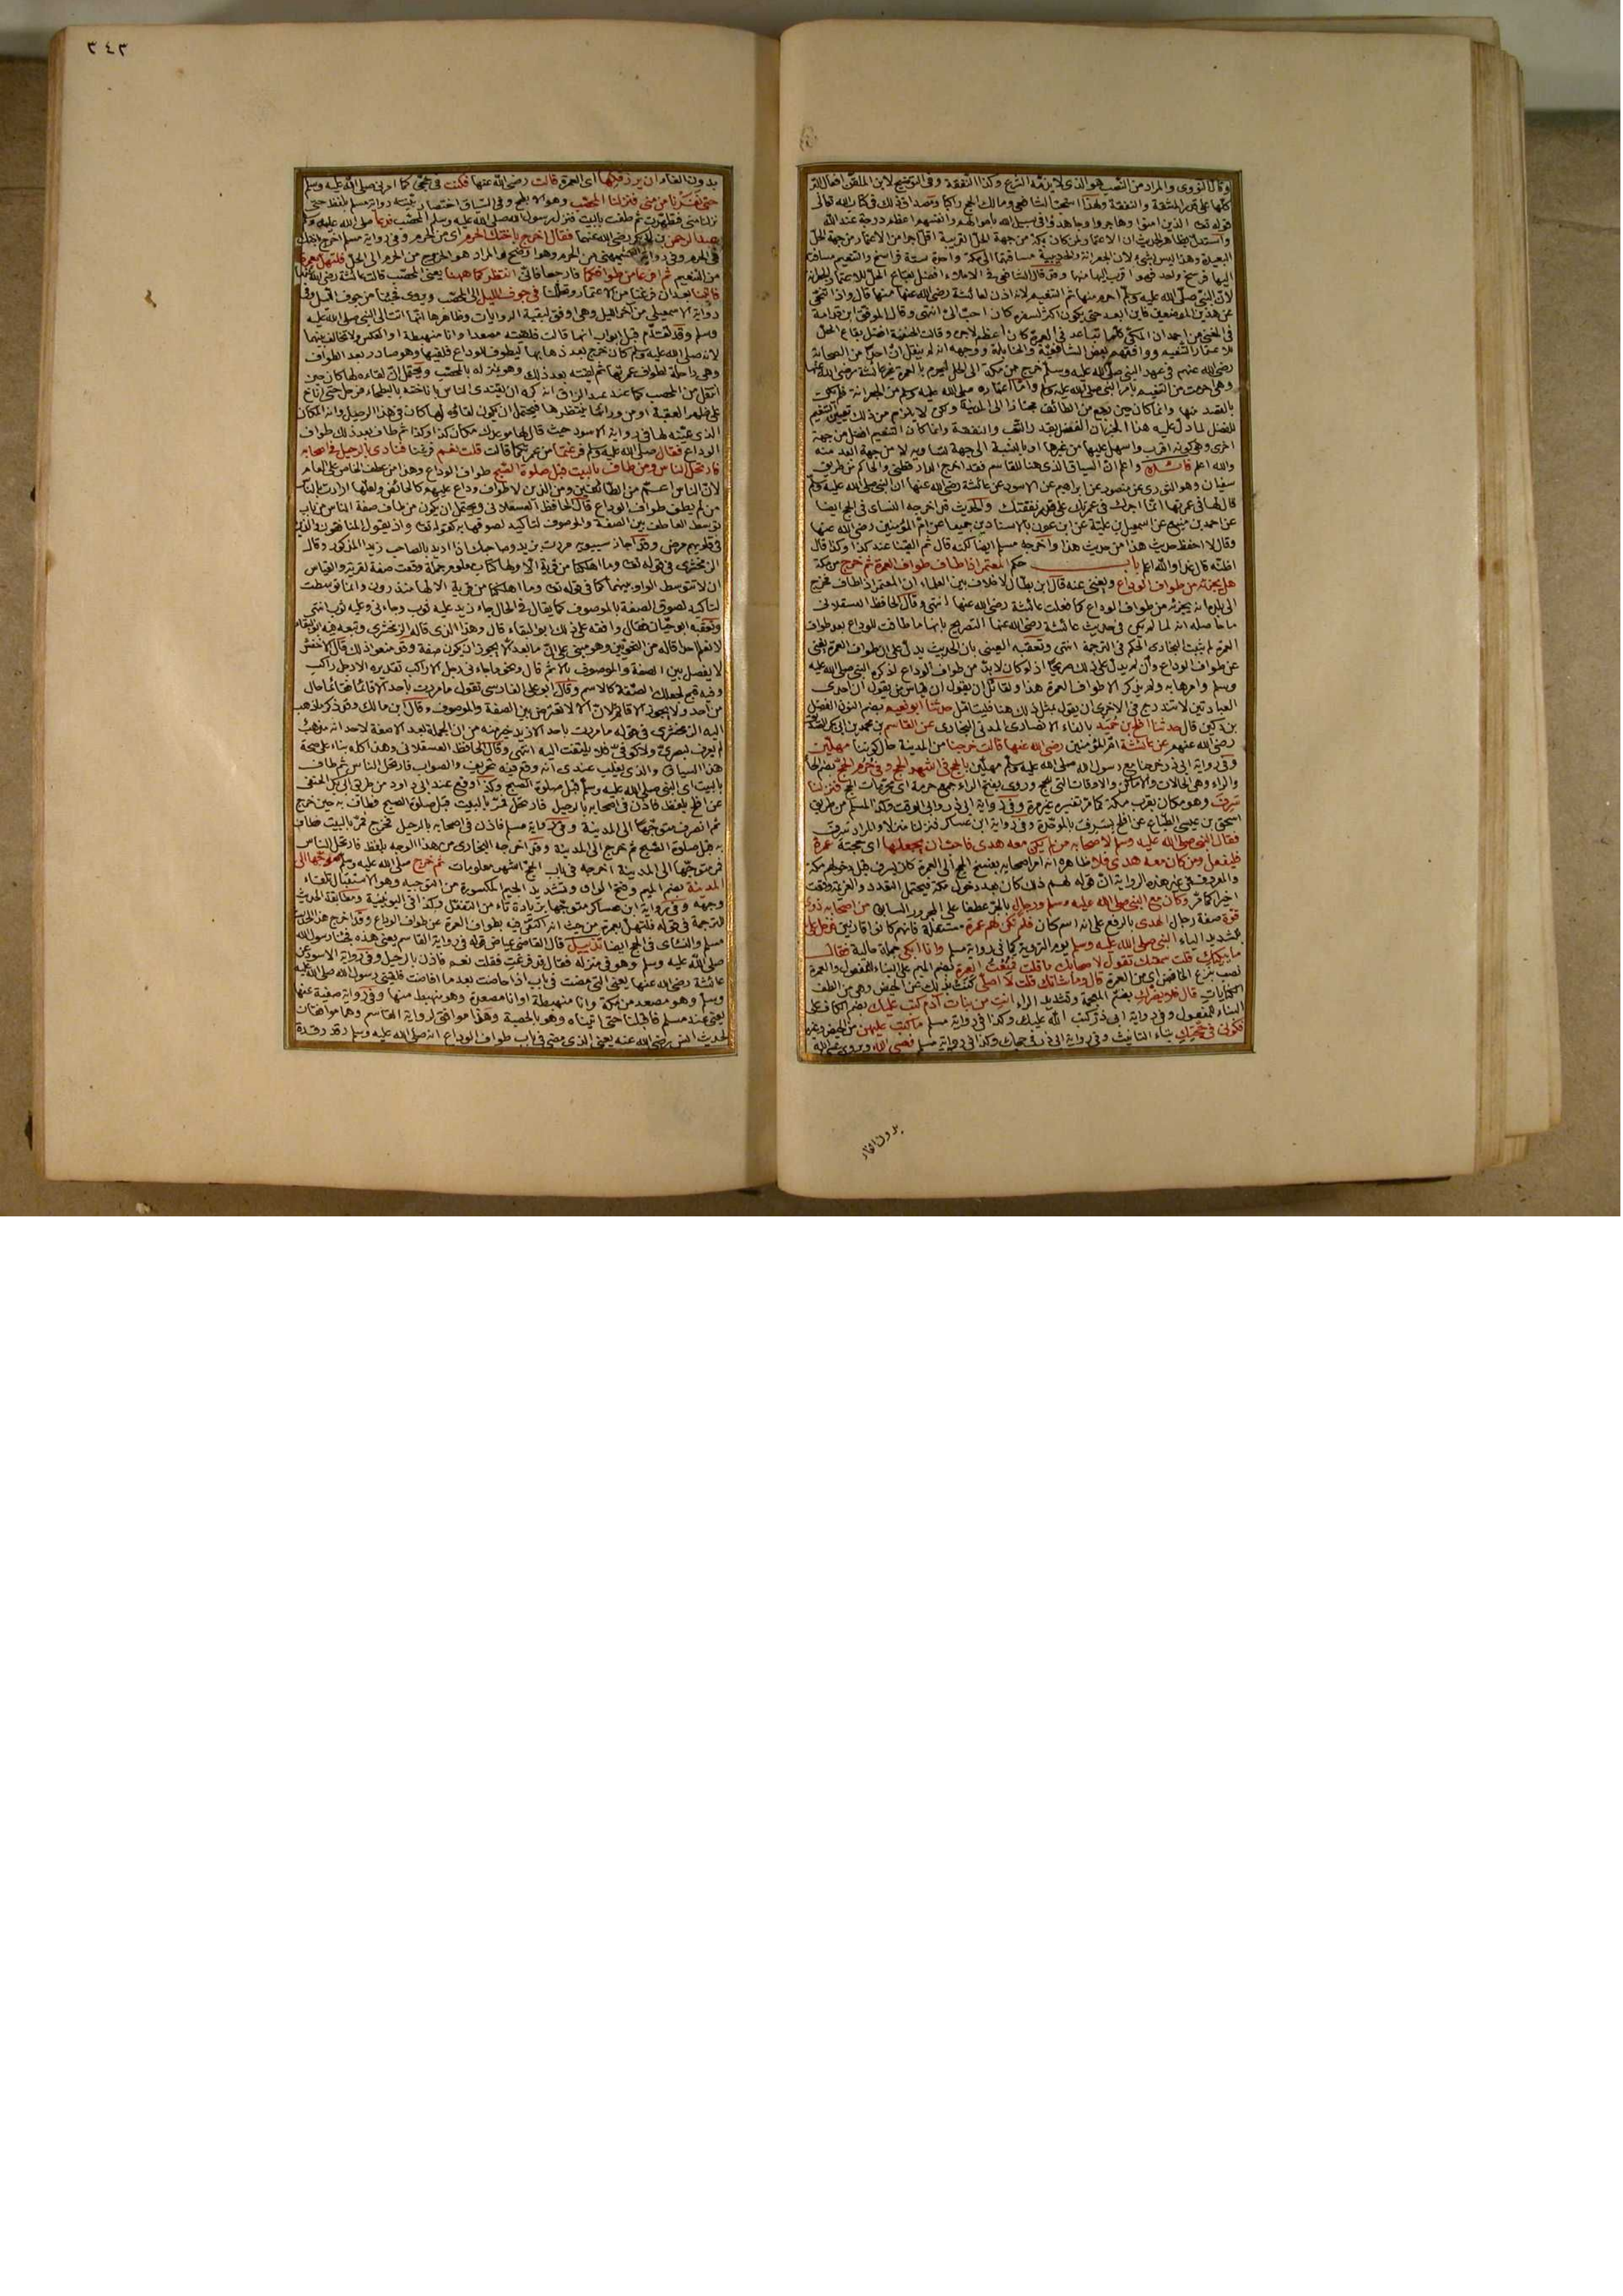 وقال النووي والمراد من النصب هو الذي لا يذمه الشرع وكذا النفقة وفي التوضيح لابن الملقن افعال البر
كلها على قدر المشقة والنفقة ولهذا استحب الشافعي ومالك الحج راكبا ومصداق ذلك في كتاب الله تعالى
قوله تعالى الذين امنوا وهاجروا وجاهدوا في سبيل الله باموالهم وانفسهم اعظم درجة عند الله
واستدل بظاهر الحديث ان الاعتمار لمن كان بمكة من جهة الحل القريبة اقل اجرا من الاعتمار من جهة الحل
البعيدة وهذا ليس بشيء لان الجعرانة والحديبية مسافتهما الى مكة واحدة ستة فراسخ والتنعيم مسافة
اليها فرسخ واحد فهو اقرب اليها منهما وقد قال الشافعي في الاملاء افضل بقاع الحل للاعتمار الجعرانة
لان النبي صلى الله عليه وسلم احرم منها ثم التنعيم لانه اذن لعائشة رضي الله عنها منها قال واذا تنحى
عن هذين الموضعين فاين ابعد حتى يكون اكثر لسفره كان احب الي انتهى وقال الموفق ابن قدامة
في المغني عن احمد ان المكي كلما تباعد في العمرة كان اعظم لاجره وقالت الحنفية افضل بقاع الحل
للاعتمار التنعيم ووافقهم بعض الشافعية والحنابلة ووجهه انه لم ينقل ان احدا من الصحابة
رضي الله عنهم في عهد النبي صلى الله عليه وسلم خرج من مكة الى الحل ليحرم بالعمرة غير عائشة رضي الله عنها
وهي احرمت من التنعيم بامر النبي صلى الله عليه وسلم واما اعتماره صلى الله عليه وسلم من الجعرانة فلم يكن
بالقصد منها وانما كان حين رجع من الطائف مجتازا الى المدينة ولكن لا يلزم من ذلك تعيين التنعيم
للفضل لما دل عليه هذا الخبر ان الفضل بقدر التعب والنفقة وانما كان التنعيم افضل من جهة
اخرى وهي كونه اقرب واسهل عليها من غيرها او بالنسبة الى جهة تساويه لا من جهة ابعد منه
والله اعلم فائدة واعلم ان السياق الذي هنا للقاسم فقد اخرج الدارقطني والحاكم من طريق
سفيان وهو الثوري عن منصور عن ابراهيم عن الاسود عن عائشة رضي الله عنها ان النبي صلى الله عليه وسلم
قال لها في عمرتها انما اجرك في عمرتك على قدر نفقتك والحديث قد اخرجه النسائي في الحج ايضا
عن احمد بن منيع عن اسمعيل بن علية عن ابن عون بالاسنادين جميعا عن ام المؤمنين رضي الله عنها
وقال لا احفظ حديث هذا من حديث هذا واخرجه مسلم ايضا لكنه قال ثم القينا عند كذا وكذا قال
اظنه قال غدا والله اعلم باب حكم المعتمر اذا طاف طواف العمرة ثم خرج من مكة
هل يجزئه من طواف الوداع ويغني عنه قال ابن بطال لا خلاف بين العلماء ان المعتمر اذا طاف فخرج
الى بلده انه يجزئه من طواف الوداع كما فعلت عائشة رضي الله عنها انتهى وقال الحافظ العسقلاني
ما حاصله انه لما لم يكن في حديث عائشة رضي الله عنها التصريح بانها ما طافت للوداع بعد طواف
العمرة لم يثبت البخاري الحكم في الترجمة انتهى وتعقبه العيني بان الحديث يدل على ان طواف العمرة يغني
عن طواف الوداع وان لم يدل على ذلك صريحا اذ لو كان لا بد من طواف الوداع لذكره النبي صلى الله عليه
وسلم وامرها به ولم يذكر الا طواف العمرة هذا ولقائل ان يقول ان قياس من يقول ان احدى
العبادتين لا تندرج في الاخرى ان يقول بمثل ذلك هنا فليتامل حدثنا ابو نعيم بضم النون الفضل
بن دكين قال حدثنا افلح بن حميد بالفاء الانصاري المدني البخاري عن القاسم بن محمد بن ابي بكر الصديق
رضي الله عنهم عن عائشة ام المؤمنين رضي الله عنها قالت خرجنا من المدينة حال كوننا مهلين
وفي رواية ابي ذر خرجنا مع رسول الله صلى الله عليه وسلم مهلين بالحج في اشهر الحج وفي حرم الحج بضم الحاء
والراء وهي الحالات والاماكن والاوقات التي للحج وروى بفتح الراء جمع حرمة اي محرمات الحج فنزلنا
سرف وهو مكان بقرب مكة كما مر تفسيره غير مرة وفي رواية ابي ذر وابي الوقت وكذا لمسلم من طريق
اسحق بن عيسى الطباع عن افلح بسرف بالموحدة وفي رواية ابن عساكر فنزلنا منزلا والمراد سرف
فقال النبي صلى الله عليه وسلم لاصحابه من لم يكن معه هدي فاحب ان يجعلها اي حجته عمرة
فليفعل ومن كان معه هدي فلا ظاهره انه امر اصحابه بفسخ الحج الى العمرة كان بسرف قبل دخولهم مكة
والمعروف في غير هذه الرواية ان قوله لهم ذلك كان بعد دخول مكة فيحتمل التعدد والعزيمة وقعت
اخيرا كما مر وكان مع النبي صلى الله عليه وسلم ورجال بالجر عطفا على المجرور السابق من اصحابه ذوي
قوة صفة رجال الهدي بالرفع على انه اسم كان فلم تكن لهم عمرة مستقلة فانهم كانوا قارنين فدخل علي
بتشديد الياء النبي صلى الله عليه وسلم يوم التروية كما في رواية مسلم وانا ابكي جملة حالية فقال
ما يبكيك قلت سمعتك تقول لاصحابك ما قلت فمنعت العمرة بضم الميم على البناء للمفعول والعمرة
نصب بنزع الخافض اي من العمرة قال وما شانك قلت لا اصلي كنت بذلك عن الحيض وهي من الطف
الكنايات قال فلا يضرك بضم المعجمة وتشديد الراء انت من بنات آدم كتب عليك بضم الكاف على
البناء للمفعول وفي رواية ابي ذر كتب الله عليك وكذا في رواية مسلم ما كتب عليهن من الحيض وغيره
فكوني في حجتك بتاء التانيث وفي رواية ابي ذر في حجك وكذا في رواية مسلم فعسى الله
بدون الفاء
٣٤٣
بدون الفاء ان يرزقكها اي العمرة قالت رضي الله عنها فكنت في حجتي كما امرني صلى الله عليه وسلم
حتى نفرنا من منى فنزلنا المحصب وهو الابطح وفي السياق اختصار بينته رواية مسلم بلفظ حتى
نزلنا منى فتطهرت ثم طفت بالبيت فنزل رسول الله صلى الله عليه وسلم المحصب فدعا صلى الله عليه وسلم
عبد الرحمن بن ابي بكر رضي الله عنهما فقال اخرج باختك الحرم اي من الحرم وفي رواية مسلم اخرج باختك
من الحرم وهو اوضح فالمراد هو الخروج من الحرم الى الحل فلتهل بعمرة
من التنعيم ثم افرغا من طوافكما فارجعا فاني انتظركما ههنا يعني المحصب قالت عائشة رضي الله عنها
فاتينا بعد ان فرغنا من الاعتمار وتحللنا في جوف الليل الى المحصب
رواية الاسمعيلي من آخر الليل وهي اوفق لبقية الروايات وظاهرها انها اتت الى النبي صلى الله عليه
وسلم وقد تقدم قبل ابواب انها قالت فلقيته مصعدا وانا منهبطة او العكس ولا تخالف بينهما
لانه صلى الله عليه وسلم كان خرج بعد ذهابها ليطوف للوداع فلقيها وهو صادر بعد الطواف
وهي داخلة لطواف عمرتها ثم لقيته بعد ذلك وهو بمنزله بالمحصب ويحتمل ان لقاءه لها كان حين
انتقل من المحصب كما عند عبد الرزاق انه كره ان يقتدي الناس باناخته بالبطحاء فرحل حتى اناخ
على ظهر العقبة او من ورائها ينتظرها فيحتمل ان يكون لقاؤه لها كان في هذا الرحيل وانه المكان
الذي عينته لها في رواية الاسود حيث قال لها موعدك مكان كذا وكذا ثم طاف بعد ذلك طواف
الوداع فقال صلى الله عليه وسلم فرغتما من عمرتكما قالت قلت نعم فرغنا فنادى بالرحيل في اصحابه
فارتحل الناس ومن طاف بالبيت قبل صلوة الصبح طواف الوداع وهذا من عطف الخاص على العام
لان الناس اعم من الطائفين ومن الذين لا طواف وداع عليهم كالحائض ولعلها ارادت بالناس
من لم يطف طواف الوداع قال الحافظ العسقلاني ويحتمل ان يكون من طاف صفة الناس من باب
توسط العاطف بين الصفة والموصوف لتاكيد لصوقها به كقوله تعالى واذ يقول المنافقون والذين
في قلوبهم مرض وقد اجاز سيبويه مررت بزيد وصاحبك اذا اريد بالصاحب زيد المذكور وقال
الزمخشري في قوله تعالى وما اهلكنا من قرية الا ولها كتاب معلوم جملة وقعت صفة لقرية والقياس
ان لا تتوسط الواو بينهما كما في قوله تعالى وما اهلكنا من قرية الا لها منذرون وانما توسطت
لتاكيد لصوق الصفة بالموصوف كما يقال في الحال جاء زيد عليه ثوب وجاءني وعليه ثوب انتهى
وتعقبه ابو حيان فقال وافقه على ذلك ابو البقاء قال وهذا الذي قاله الزمخشري وتبعه فيه ابو البقاء
لا نعلم احدا قاله من النحويين وهو مبني على ان ما بعد الا يجوز ان يكون صفة وقد منعوا ذلك قال الاخفش
لا يفصل بين الصفة والموصوف بالا ثم قال ونحو ما جاءني رجل الا راكب تقديره الا رجل راكب
وفيه قبح لجعلك الصفة كالاسم وقال ابو علي الفارسي تقول ما مررت باحد الا قائما فقائما حال
من احد ولا يجوز الا قائم لان الا لا تعترض بين الصفة والموصوف وقال ابن مالك وقد ذكر ما ذهب
اليه الزمخشري في قوله ما مررت باحد الا زيد خير منه من ان الجملة بعد الا صفة لاحد انه مذهب
لم يعرف لبصري ولا كوفي فلا يلتفت اليه انتهى وقال الحافظ العسقلاني وهذا كله بناء على صحة
هذا السياق والذي يغلب عندي انه وقع فيه تحريف والصواب فارتحل الناس ثم طاف
بالبيت اي النبي صلى الله عليه وسلم قبل صلوة الصبح وكذا وقع عند ابي داود من طريق ابي بكر الحنفي
عن افلح بلفظ فاذن في اصحابه بالرحيل فارتحل فمر بالبيت قبل صلوة الصبح فطاف به حين خرج
ثم انصرف متوجها الى المدينة وفي رواية مسلم فاذن في اصحابه بالرحيل فخرج فمر بالبيت فطاف
به قبل صلوة الصبح ثم خرج الى المدينة وقد اخرجه البخاري من هذا الوجه بلفظ فارتحل الناس
فمر متوجها الى المدينة اخرجه في باب الحج اشهر معلومات ثم خرج صلى الله عليه وسلم متوجها الى
المدينة بضم الميم وفتح الواو وتشديد الجيم المكسورة من التوجيه وهو الاستقبال تلقاء
وجهه وفي رواية ابن عساكر متوجها بزيادة تاء من التفعل وكذا في اليونينية ومطابقة الحديث
للترجمة في قوله فلتهل بعمرة من حيث انه اكتفى فيه بطواف العمرة عن طواف الوداع وقد اخرج هذا الحديث
مسلم والنسائي في الحج ايضا تذييل قال القاضي عياض قوله في رواية القاسم يعني هذه فجئنا رسول الله
صلى الله عليه وسلم وهو في منزله فقال فهل فرغت فقلت نعم فاذن بالرحيل وفي رواية الاسود عن
عائشة رضي الله عنها يعني التي مضت في باب اذا حاضت بعد ما افاضت فلقيني رسول الله صلى الله عليه
وسلم وهو مصعد من مكة وانا منهبطة او انا مصعدة وهو منهبط منها وفي رواية صفية عنها
يعني عند مسلم فاقبلنا حتى اتيناه وهو بالحصبة وهذا موافق لرواية القاسم وهما موافقان
لحديث انس رضي الله عنه يعني الذي مضى في باب طواف الوداع انه صلى الله عليه وسلم رقد رقدة